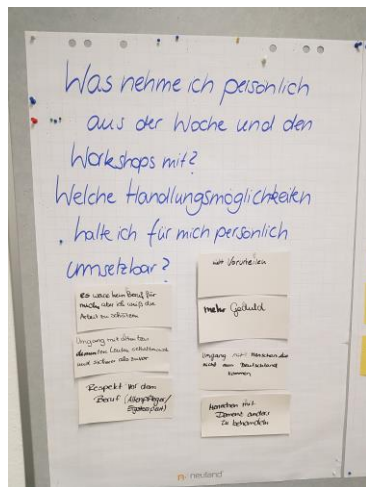 Was nehme ich persönlich
aus der Woche und den
Workshops mit?
Welche Handlungsmöglichkeiten
halte ich für mich persönlich
umsetzbar?
es wäre kein Beruf für
mich, aber ich weiß die
Arbeit zu schätzen
Umgang mit
dementen Leuten
und sicherer als zuvor
Respekt vor dem
Beruf (Altenpfleger/
mit Vorurteilen
mehr Geduld
Umgang mit Menschen die
nicht aus Deutschland
kommen
Menschen mit
Demenz anders
zu behandeln
neuland